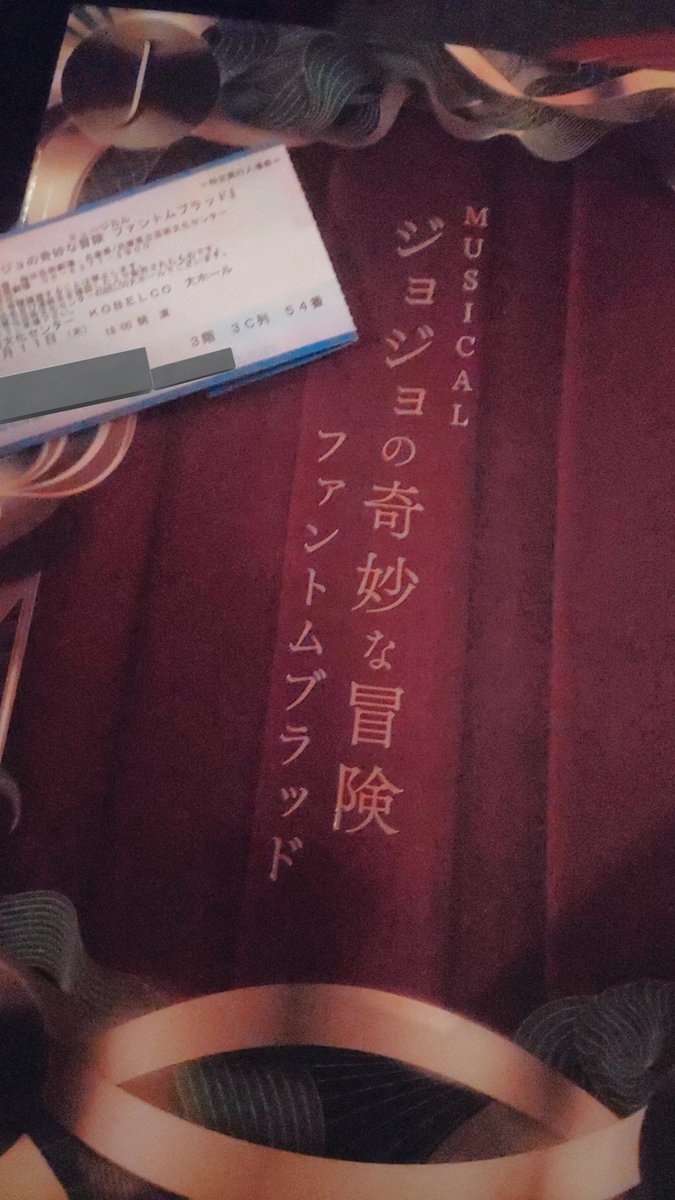 MUSICAL
ジョジョの奇妙な冒険
ファントムブラッド
ミュージカル
ジョの奇妙な冒険 ファントムブラッド』
KOBELCO 大ホール
月11日(木) 18:00開演
3階 3C列 54番